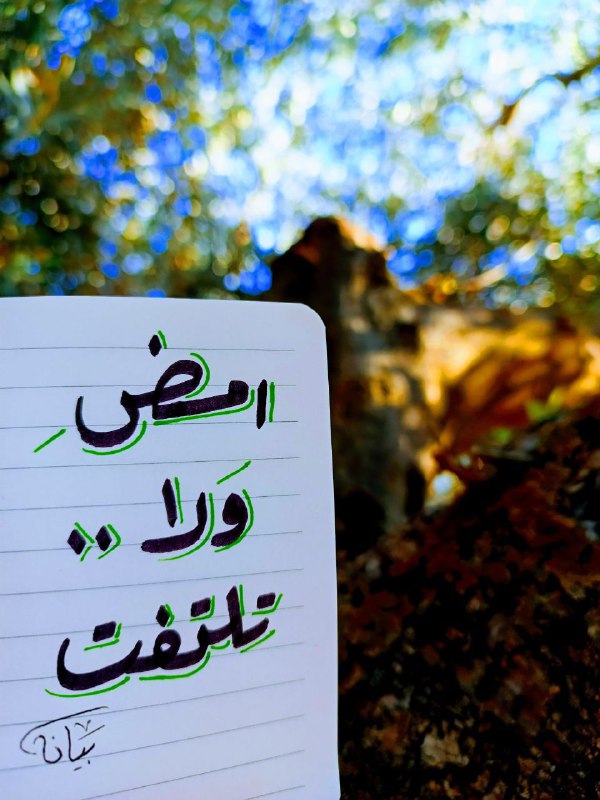 امضِ
وَلا ..
تلتفت
بَيَانه